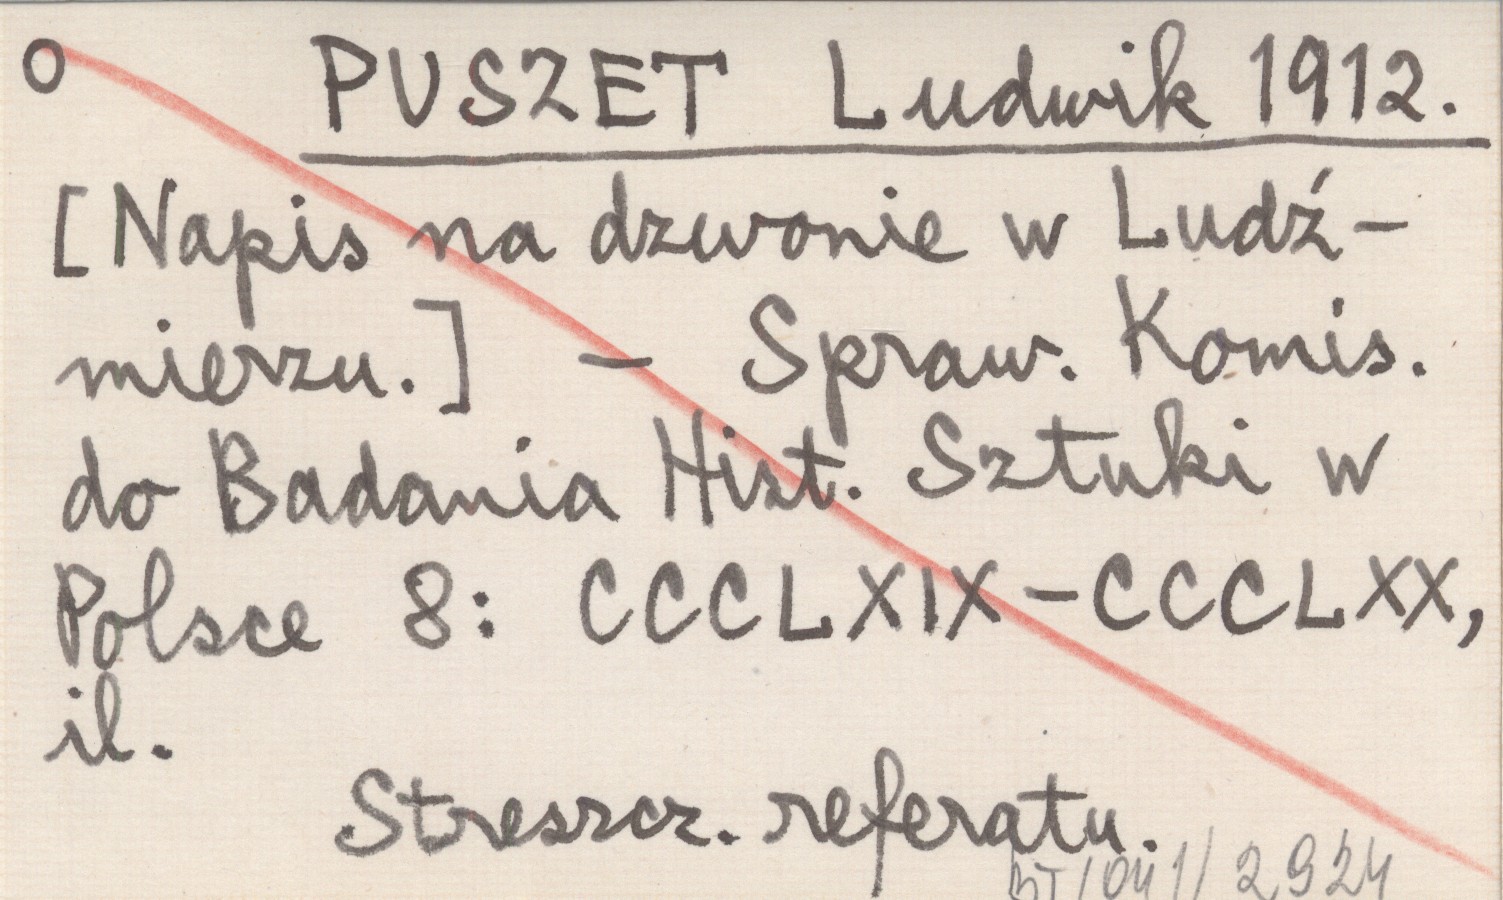 O PUSZET Ludwik 1912.
[Napis na dzwonie w Ludź-
mierzu.] - Spraw. Komis.
do Badania Hist. Sztuki w
Polsce 8: CCCLXIX-CCCLXX,
il.
Streszcz. referatu.
/ 2924